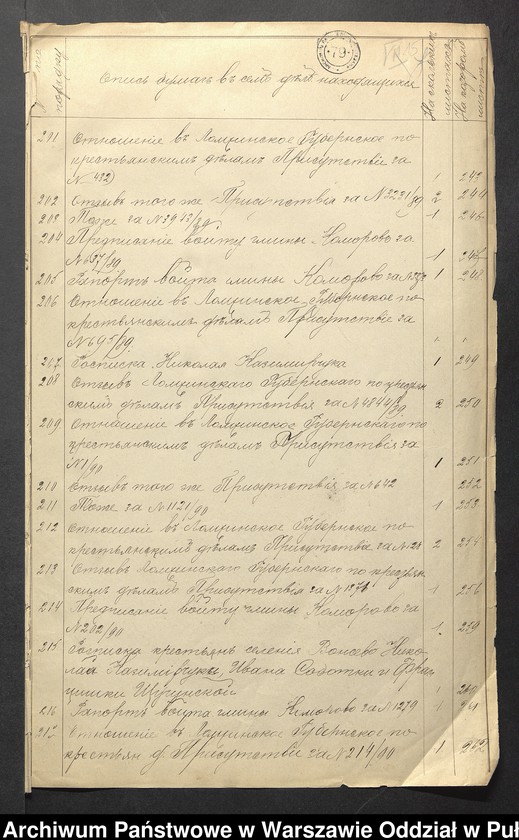 79
№ по порядку
Опись бумагъ въ семъ дѣлѣ находящихся
На сколькихъ листахъ
На которомъ листѣ
201 Отношеніе въ Ломжинское Губернское по
крестьянскимъ дѣламъ Присутствіе за
№ 432) 1 243
202 Отзывъ того же Присутствія за № 2231/89 2 244
203 Тоже за № 3913/89 1 246
204 Предписаніе войту гмины Коморово за
№ 637/89 1
205 Рапортъ войта гмины Коморово за № 1 248
206 Отношеніе въ Ломжинское Губернское по
крестьянскимъ дѣламъ Присутствіе за
№ 695/89
207 Росписка Николая 1 249
208 Отзывъ Ломжинскаго Губернскаго по крестьян
скимъ дѣламъ Присутствія за № 4844/89 2 250
209 Отношеніе въ Ломжинское Губернскаго по
крестьянскимъ дѣламъ Присутствія за
№ 1/90 1 251
210 Отзывъ того же Присутствія за № 642 252
211 Тоже за № 1121/90 1 253
212 Отношеніе въ Ломжинское Губернское по
крестьянскимъ дѣламъ Присутствіе за № 2 254
213 Отзывъ Ломжинскаго Губернскаго по крестьян
скимъ дѣламъ Присутствія за № 1 256
214 Предписаніе войту гмины Коморово за
№ 202/90 1 259
215 Росписка крестьянъ селенія Нико
лая Ивана и Фран
цишки 260
216 Рапортъ войта гмины Коморово за № 1279 1 261
217 Отношеніе въ Ломжинское Губернское по
крестьян д. Присутствіе за № 214/90 1 262
Archiwum Państwowe w Warszawie Oddział w Puł